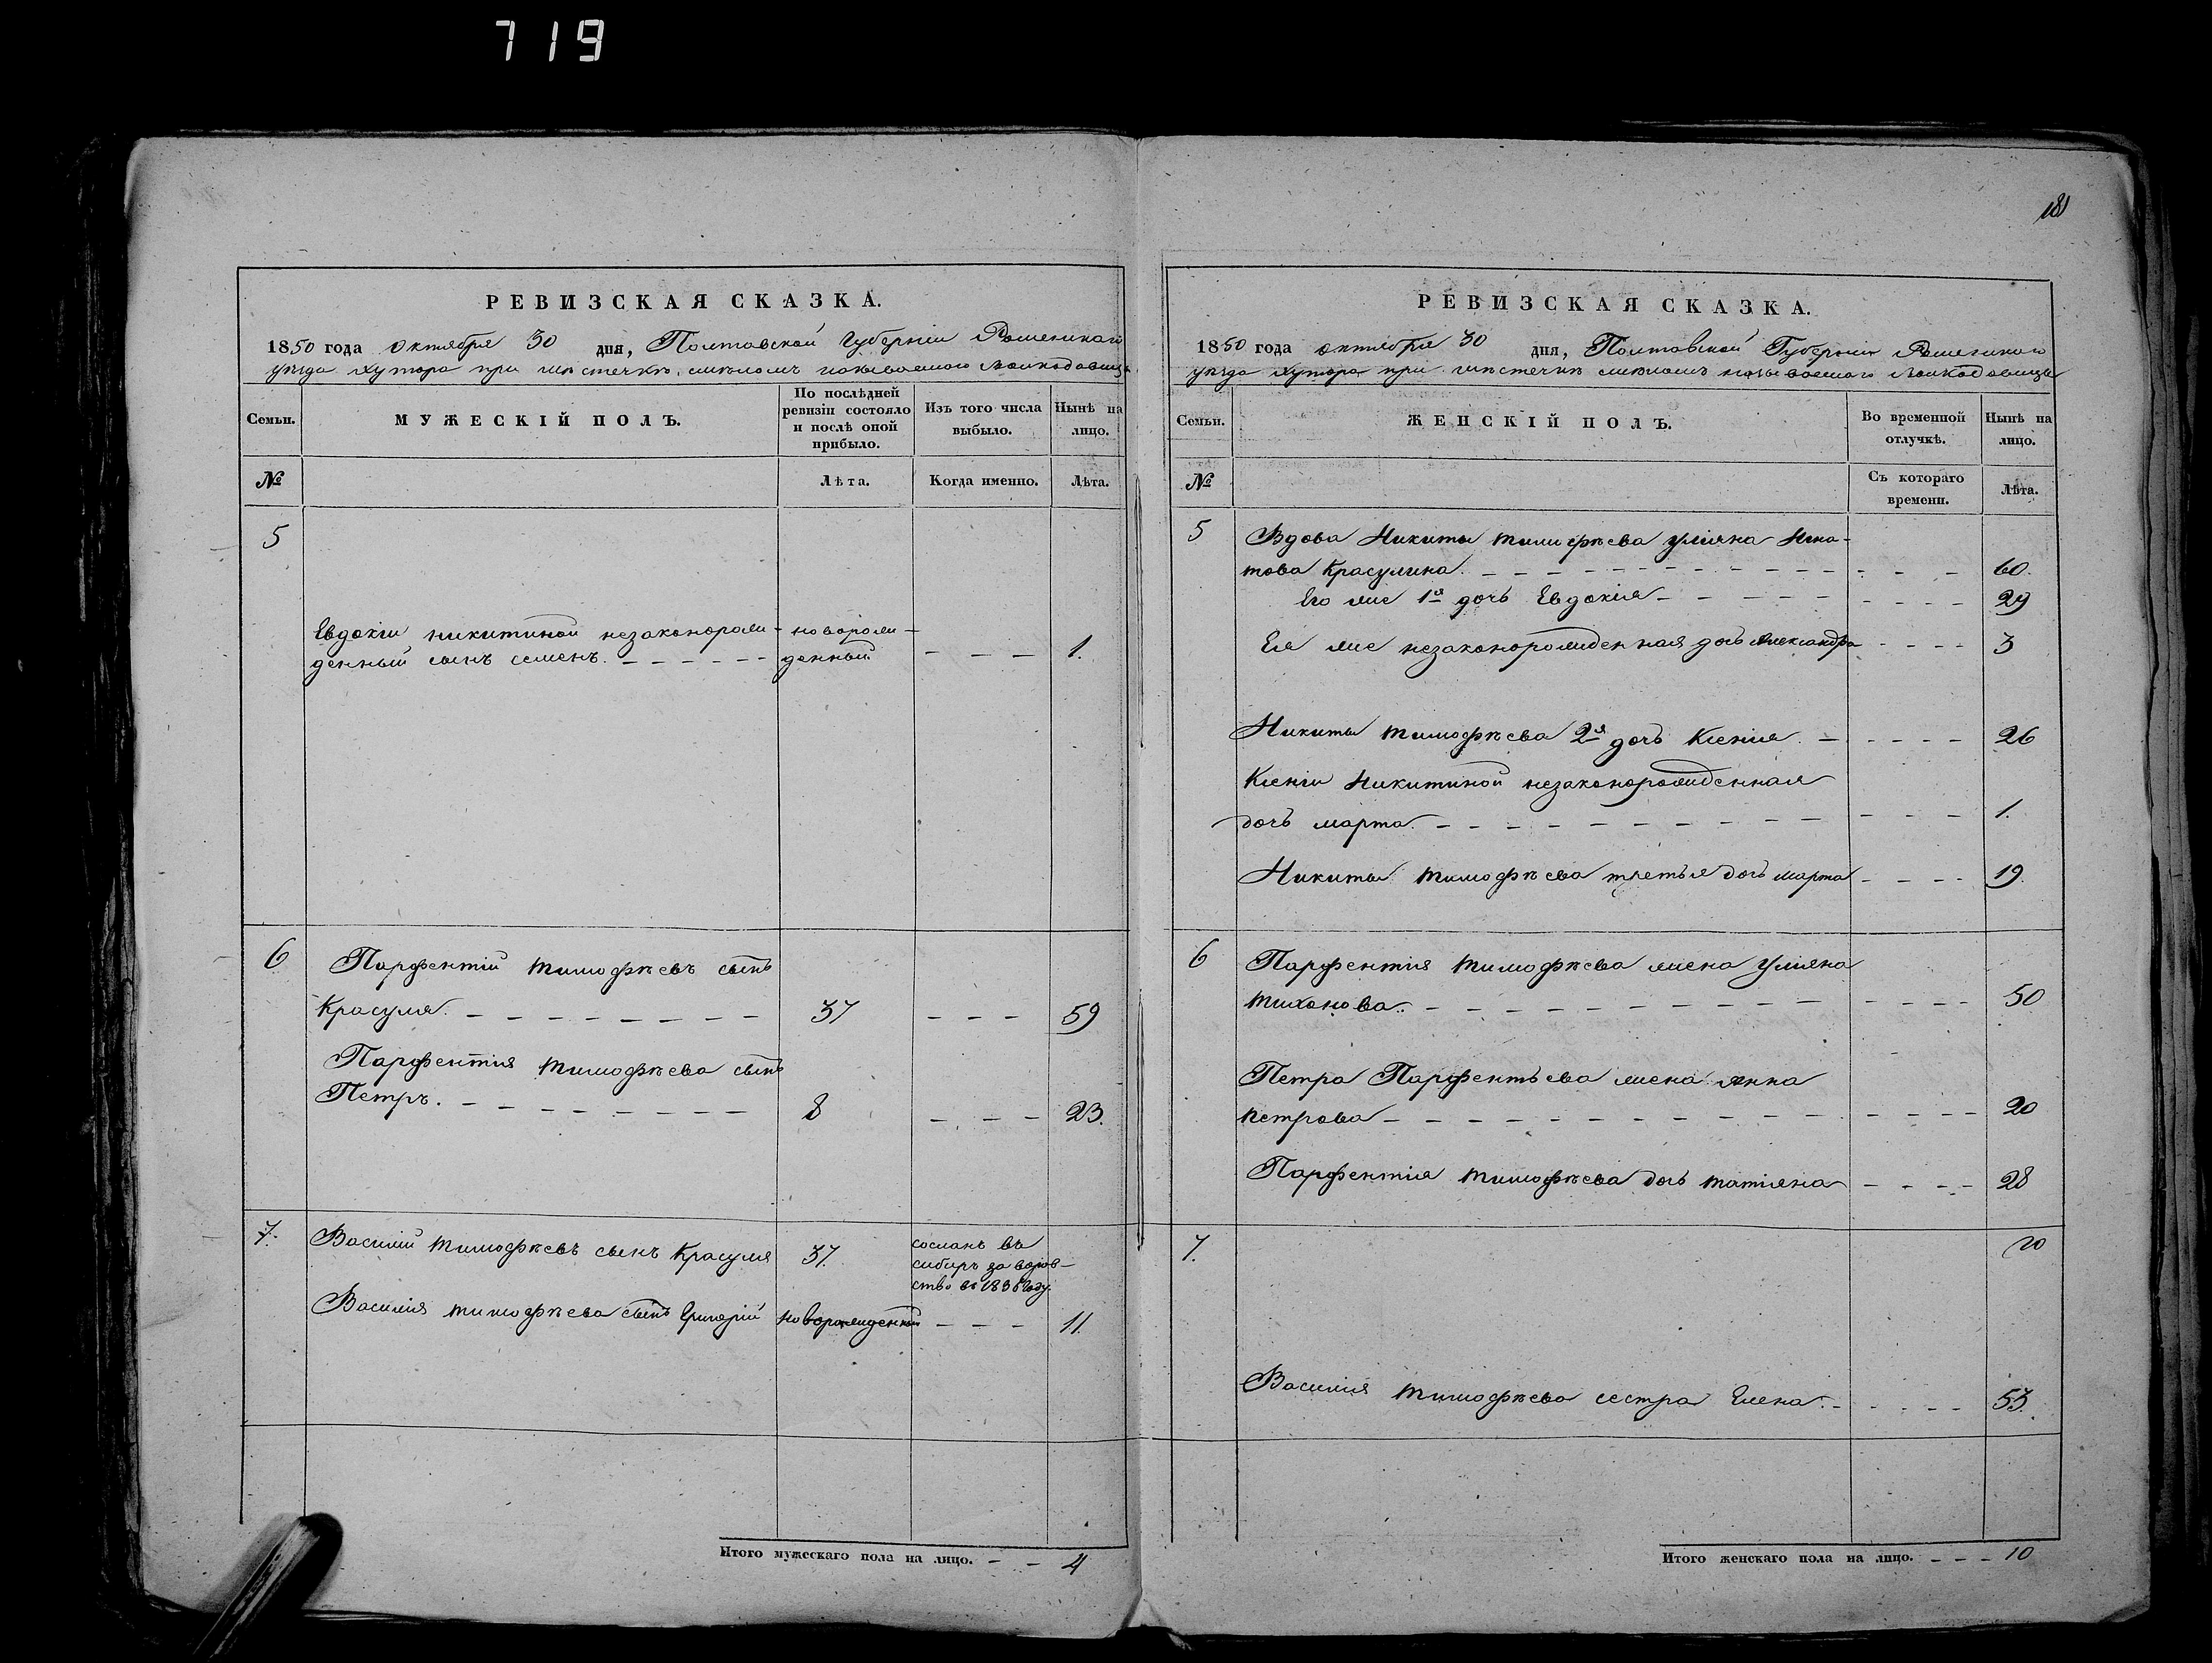 719
181
РЕВИЗСКАЯ СКАЗКА.
1850 года октября 30 дня, Полтавской Губерніи Роменскаго
уезда хутора при местечке смѣломъ называемаго
Семьи.
МУЖЕСКІЙ ПОЛЪ.
По послѣдней
ревизіи состояло
и послѣ оной
прибыло.
Изъ того числа
выбыло.
Нынѣ на
лицо.
№
Лѣта.
Когда именно.
Лѣта.
5
Евдокіи никитиной незаконорож- новорож-
денный сынъ семенъ. денный 1.
6
Парфентій тимофѣевъ сынъ
Красуля. 37 59
Парфентія тимофѣева сынъ
Петръ. 8 23.
7.
Василій тимофѣевъ сынъ Красуля 37. сосланъ въ
сибирь за воров-
ство въ году.
Василія тимофѣева сынъ Григорій новорожденный 11.
Итого мужескаго пола на лицо. 4
РЕВИЗСКАЯ СКАЗКА.
1850 года октября 30 дня, Полтавской Губерніи Роменскаго
уезда хутора при местечке смѣломъ называемаго
Семьи.
ЖЕНСКІЙ ПОЛЪ.
Во временной
отлучкѣ.
Нынѣ на
лицо.
№
Съ котораго
времени.
Лѣта.
5
Вдова Никиты тимофѣева уліяна Игна-
това Красулина. 60.
Его же 1я дочь Евдокія 29
Ея же незаконорожденная дочь Александра 3
Никиты тимофѣева 2я дочь Ксенія. 26
Ксеніи Никитиной незаконорожденная
дочь марта. 1.
Никиты тимофѣева третья дочь марта 19.
6
Парфентія тимофѣева жена уліяна
тихонова. 50
Петра Парфентьева жена анна
петрова 20
Парфентія тимофѣева дочь татіяна 28
7.
Василія тимофѣева сестра Елена. 53.
Итого женскаго пола на лицо. 10